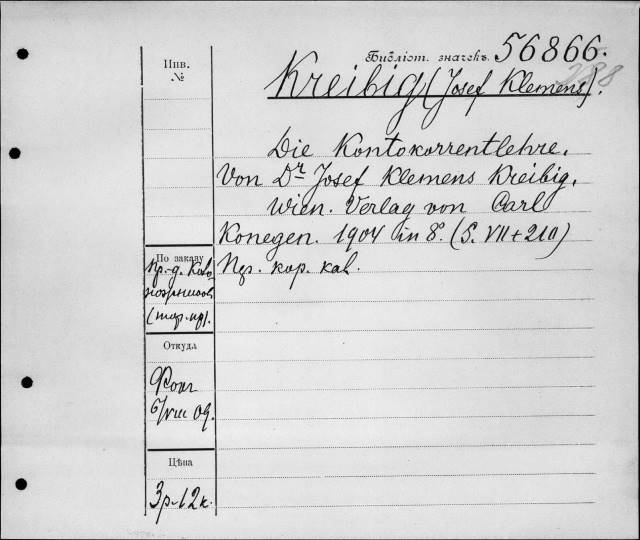 Библіот. значекъ 56866.
Kreibig (Josef Klemens).
Инв.
№
Die Kontokorrentlehre.
Von Dr. Josef Klemens Kreibig.
Wien. Verlag von Carl
Konegen. 1904 in 8°. (S. VII+210)
По заказу
Пр.-д.
(тор. пр).
кор. каб.
Откуда
6/VIII 09.
Цѣна
3р-12к.